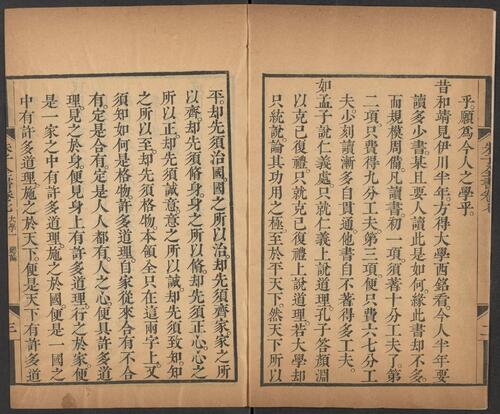 乎。願爲今人之學乎。
昔和靖見伊川半年。方得大學西銘看。今人半年要
讀多少書。某且要人讀此是如何。緣此書却不多。
而規模周備。凡讀書初一項須著十分工夫了。第
二項只費得九分工夫。第三項便只費六七分工
夫。少刻讀漸多。自貫通他書。自不著得多工夫。
如孟子說仁義處。只就仁義上說道理。孔子答顏淵
以克己復禮。只就克己復禮上說道理。若大學却
只統說。論其功用之極。至於平天下。然天下所以
平。却先須治國。國之所以治。却先須齊家。家之所
以齊。却先須脩身。身之所以脩。却先須正心。心之
所以正。却先須誠意。意之所以誠。却先須致知。知
之所以至。却先須格物。本領全只在這兩字上。又
須知如何是格物。許多道理。自家從來合有不合
有。定是合有。定是人人都有。人之心便具許多道
理。見之於身。便見身上有許多道理。行之於家。便
是一家之中有許多道理。施之於國。便是一國之
中有許多道理。施之於天下。便是天下有許多道
朱子全書卷七 大學一
三
二